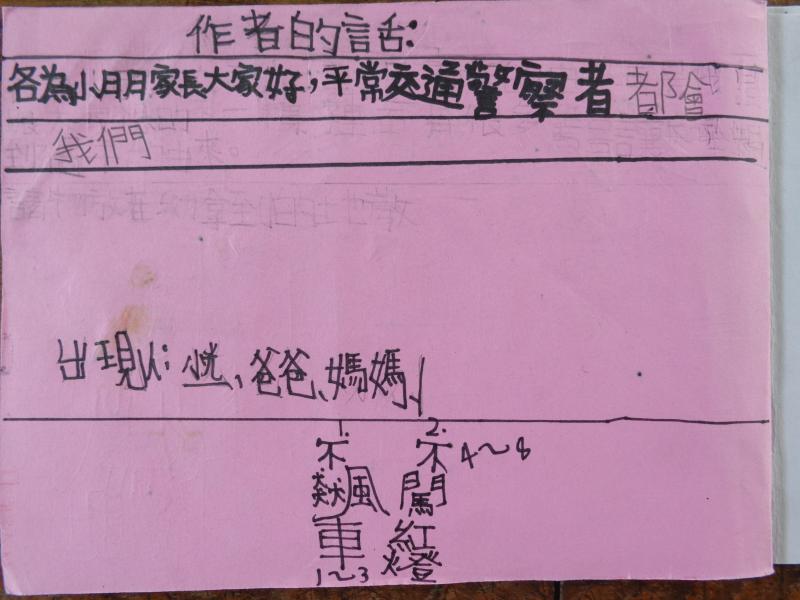 作者的話:
各為小月月家長大家好，平常交通警察者都會
我們
出現人: 爸爸、媽媽、
1.不飆車1~3
2.不闖紅燈4~8